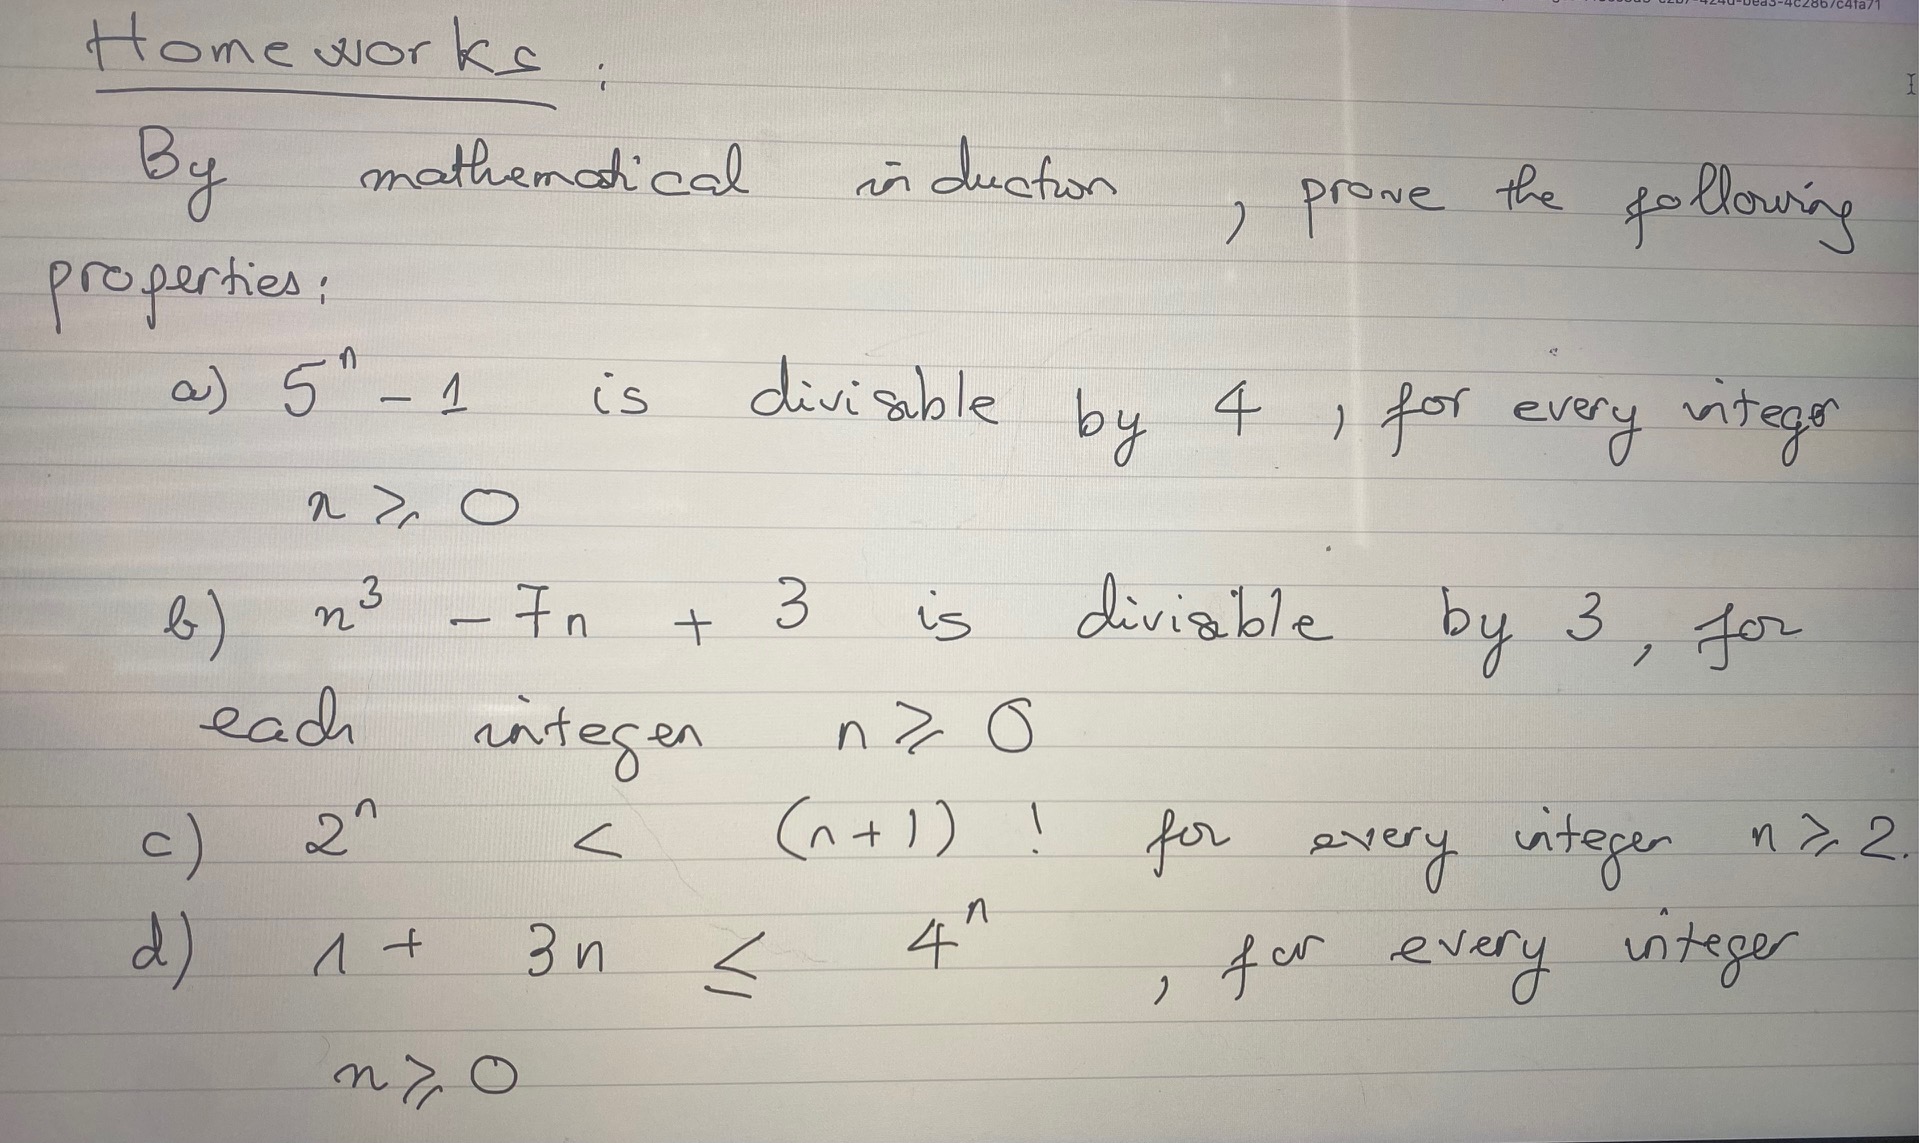 Homeworks:
By mathematical induction, prove the following
properties:
a) 5ⁿ - 1 is divisible by 4, for every integer
n ⩾ 0
b) n³ - 7n + 3 is divisible by 3, for
each integer n ⩾ 0
c) 2ⁿ < (n+1)! for every integer n ⩾ 2.
d) 1 + 3n ≤ 4ⁿ, for every integer
n ⩾ 0